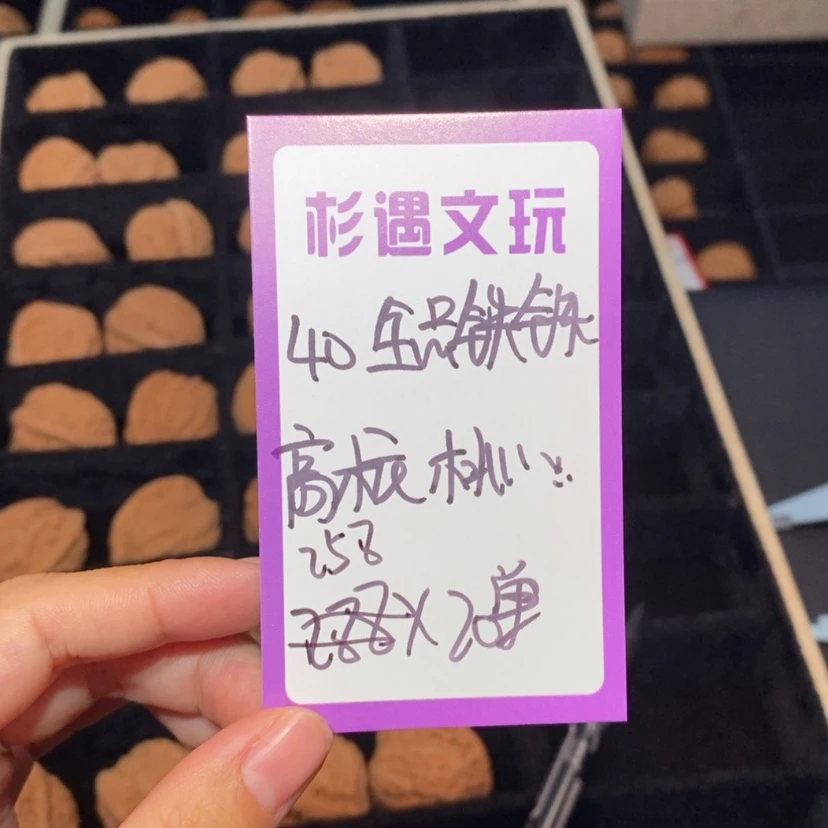 杉遇文玩
40全品铁铁
高桩桃心
258
288X20单